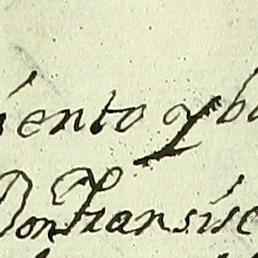 iento y ba
Don Fransisc